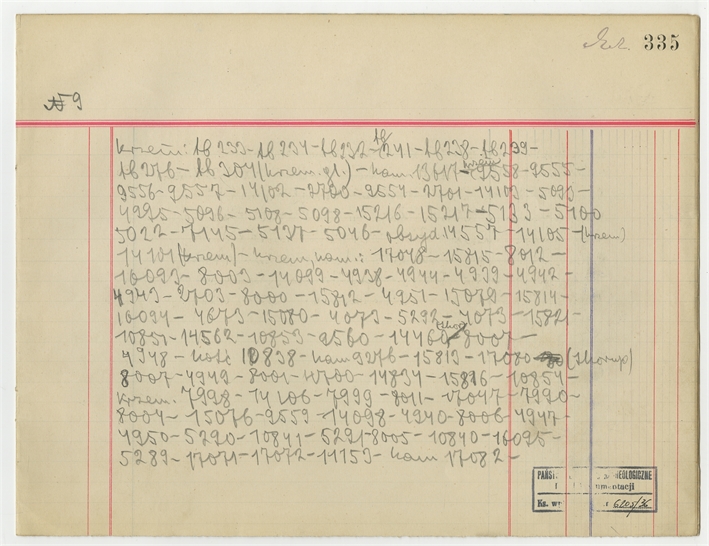 335
№ 9
Krzem: Ab 233 - Ab 234 - Ab 232 - Ab 241 - Ab 238 - Ab 239 -
Ab 276 - Ab 304 (krzem. gl.) - Kam 13617 - krzem 9558 - 9555 -
9556 - 9557 - 14102 - 2700 - 9554 - 2701 - 14103 - 5093 -
4995 - 5096 - 5108 - 5098 - 15216 - 15217 - 5133 - 5100
5022 - 7145 - 5137 - 5046 - obsyd. 14557 - 14105 - (krzem)
14101 (krzem) - krzem, kam.: 17048 - 15815 - 8012 -
16093 - 8003 - 14099 - 4938 - 4944 - 4939 - 4942 -
4943 - 2703 - 8000 - 15812 - 4951 - 15079 - 15814 -
16094 - 4673 - 15080 - 4073 - 5292 - 4073 - 15821 -
10851 - 14562 - 10853 - 9560 - 14460 - 8007 -
4948 - kość 10838 - kam 9276 - 15813 - 17080 - (skorup)
8007 - 4949 - 8001 - 10700 - 14834 - 15816 - 10854 -
krzem. 7998 - 14106 - 7999 - 8011 - 17047 - 7990 -
8004 - 15076 - 9559 - 14098 - 4940 - 8006 - 4947 -
4950 - 5290 - 10841 - 5291 - 8005 - 10840 - 16095 -
5289 - 17071 - 17072 - 14153 - kam 17082 -
PAŃST EOLOGICZNE
mentacji
Ks. w 6205/36